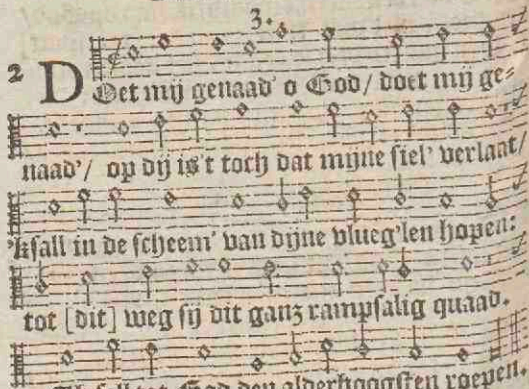 3.
2 DOet mij genaad' o God/ doet mij ge=
naad'/ op dij is't toch dat mijne siel' verlaat/
'ksall in de scheem' van dijne vlueg'len hopen:
tot [dit] weg sij dit ganz rampsalig quaad.
God den alderhoogsten roepen.